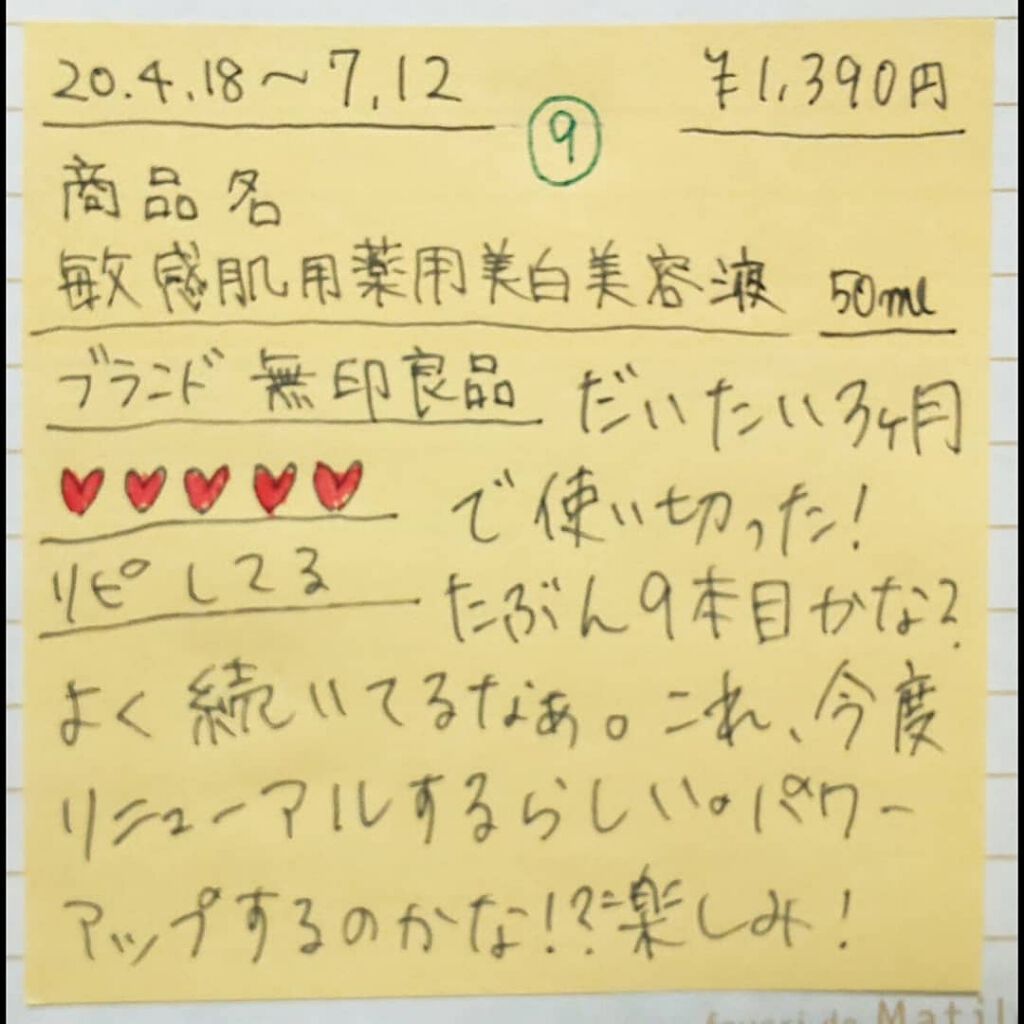 20.4.18～7.12
⑨
¥1,390円
商品名
敏感肌用薬用美白美容液 50ml
ブランド 無印良品
♥♥♥♥♥
リピしてる
だいたい3ヶ月
で使い切った!
たぶん9本目かな?
よく続いてるなぁ。これ、今度
リニューアルするらしい。パワー
アップするのかな!?楽しみ!
Matil